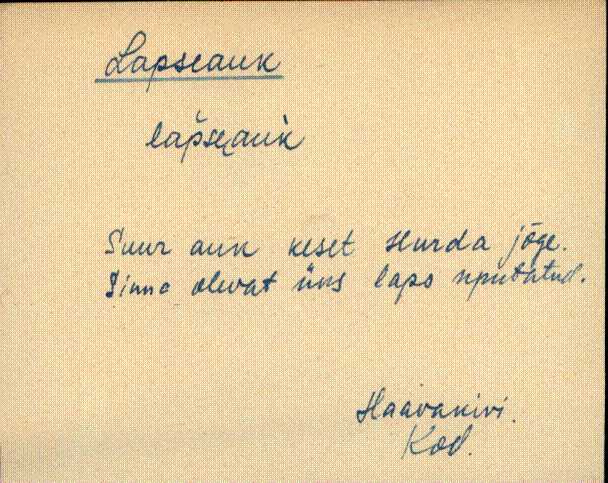 Lapseauk
lap̆se̮auk̀
Suur auk keset Hurda jõge.
Sinna olevat üks laps uputatud.
Haavakivi.
Kod.